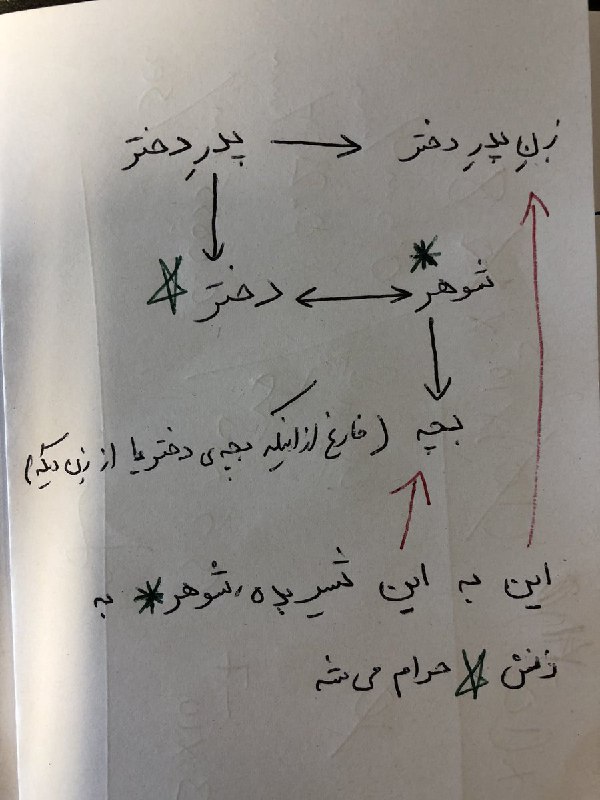 زنِ پدرِ دختر پدرِ دختر
شوهر دختر
بچه (فارغ از اینکه بچه‌ی دختر یا از زن دیگه)
این به این شیر بده، شوهر به
زنش حرام می‌شه